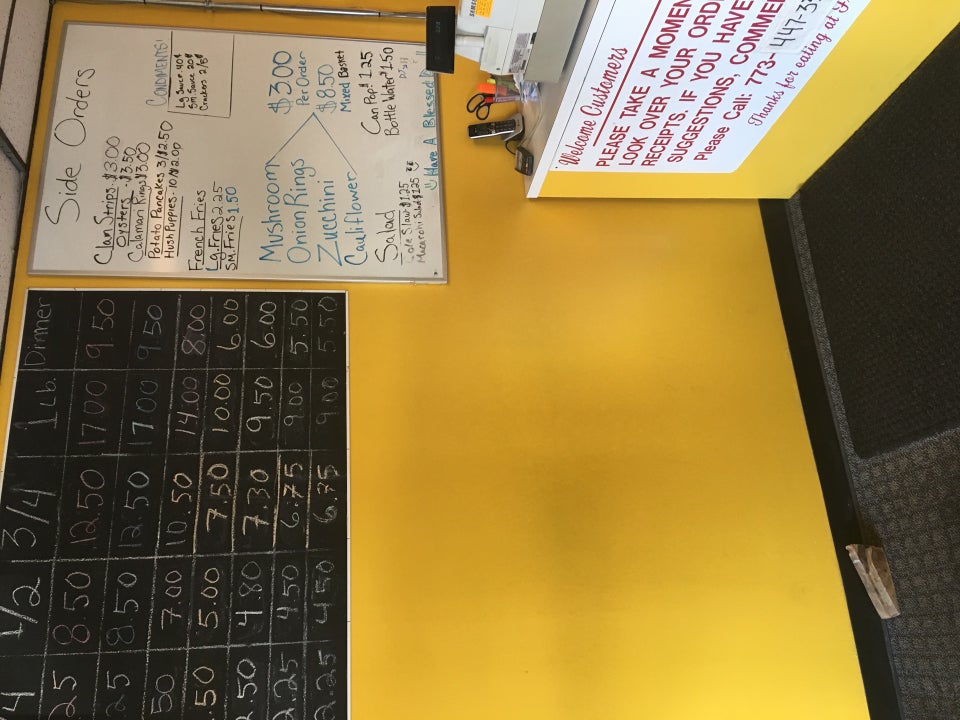 4 1/2 3/4 1 Lb. Dinner
25 8.50 12.50 17.00 9.50
25 8.50 12.50 17.00 9.50
50 7.00 10.50 14.00 8.00
.50 5.00 7.50 10.00 6.00
2.50 4.80 7.30 9.50 6.00
2.25 4.50 6.75 9.00 5.50
2.25 4.50 6.75 9.00 5.50
Side Orders
Clan Strips $3.00
Oysters $3.50
Calamari Rings $3.00
Potato Pancakes 3/$2.50
Hush Puppies - 10/$2.00
CONDIMENTS!
Lg Sauce 40¢
Sm Sauce 20¢
Crackers 2/5¢
French Fries
Lg. Fries 2.25
SM. Fries 1.50
Mushroom
Onion Rings
Zucchini
Cauliflower
$3.00
Per Order
$8.50
Mixed Basket
Salad
Cole Slaw $1.25
Macaroni Salad $1.25
Can Pop $1.25
Bottle Water $1.50
Have A Blessed
Welcome Customers
PLEASE TAKE A MOMEN
LOOK OVER YOUR ORD
RECEIPTS. IF YOU HAVE
SUGGESTIONS, COMME
Please Call: 773-447-3
Thanks for eating at